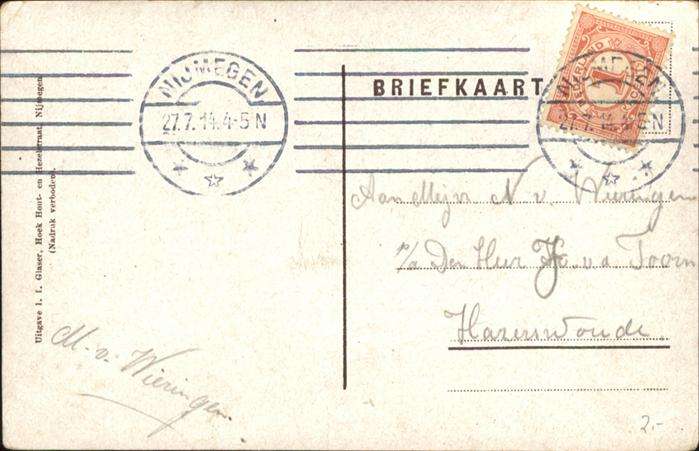 NIJMEGEN
27.7.14.4-5 N
BRIEFKAART
NEDERLAND
1
NIJMEGEN
27.7.14.4-5 N
Aan Mejn N v. Wieringen
p/a Den Heer Jo. v.d Toorn
Hazerswoude.
M. v. Wieringen.
Uitgave 1. f. Glaser, Hoek Hout- en Hezelstraat, Nijmegen
(Nadruk verboden).
2.-